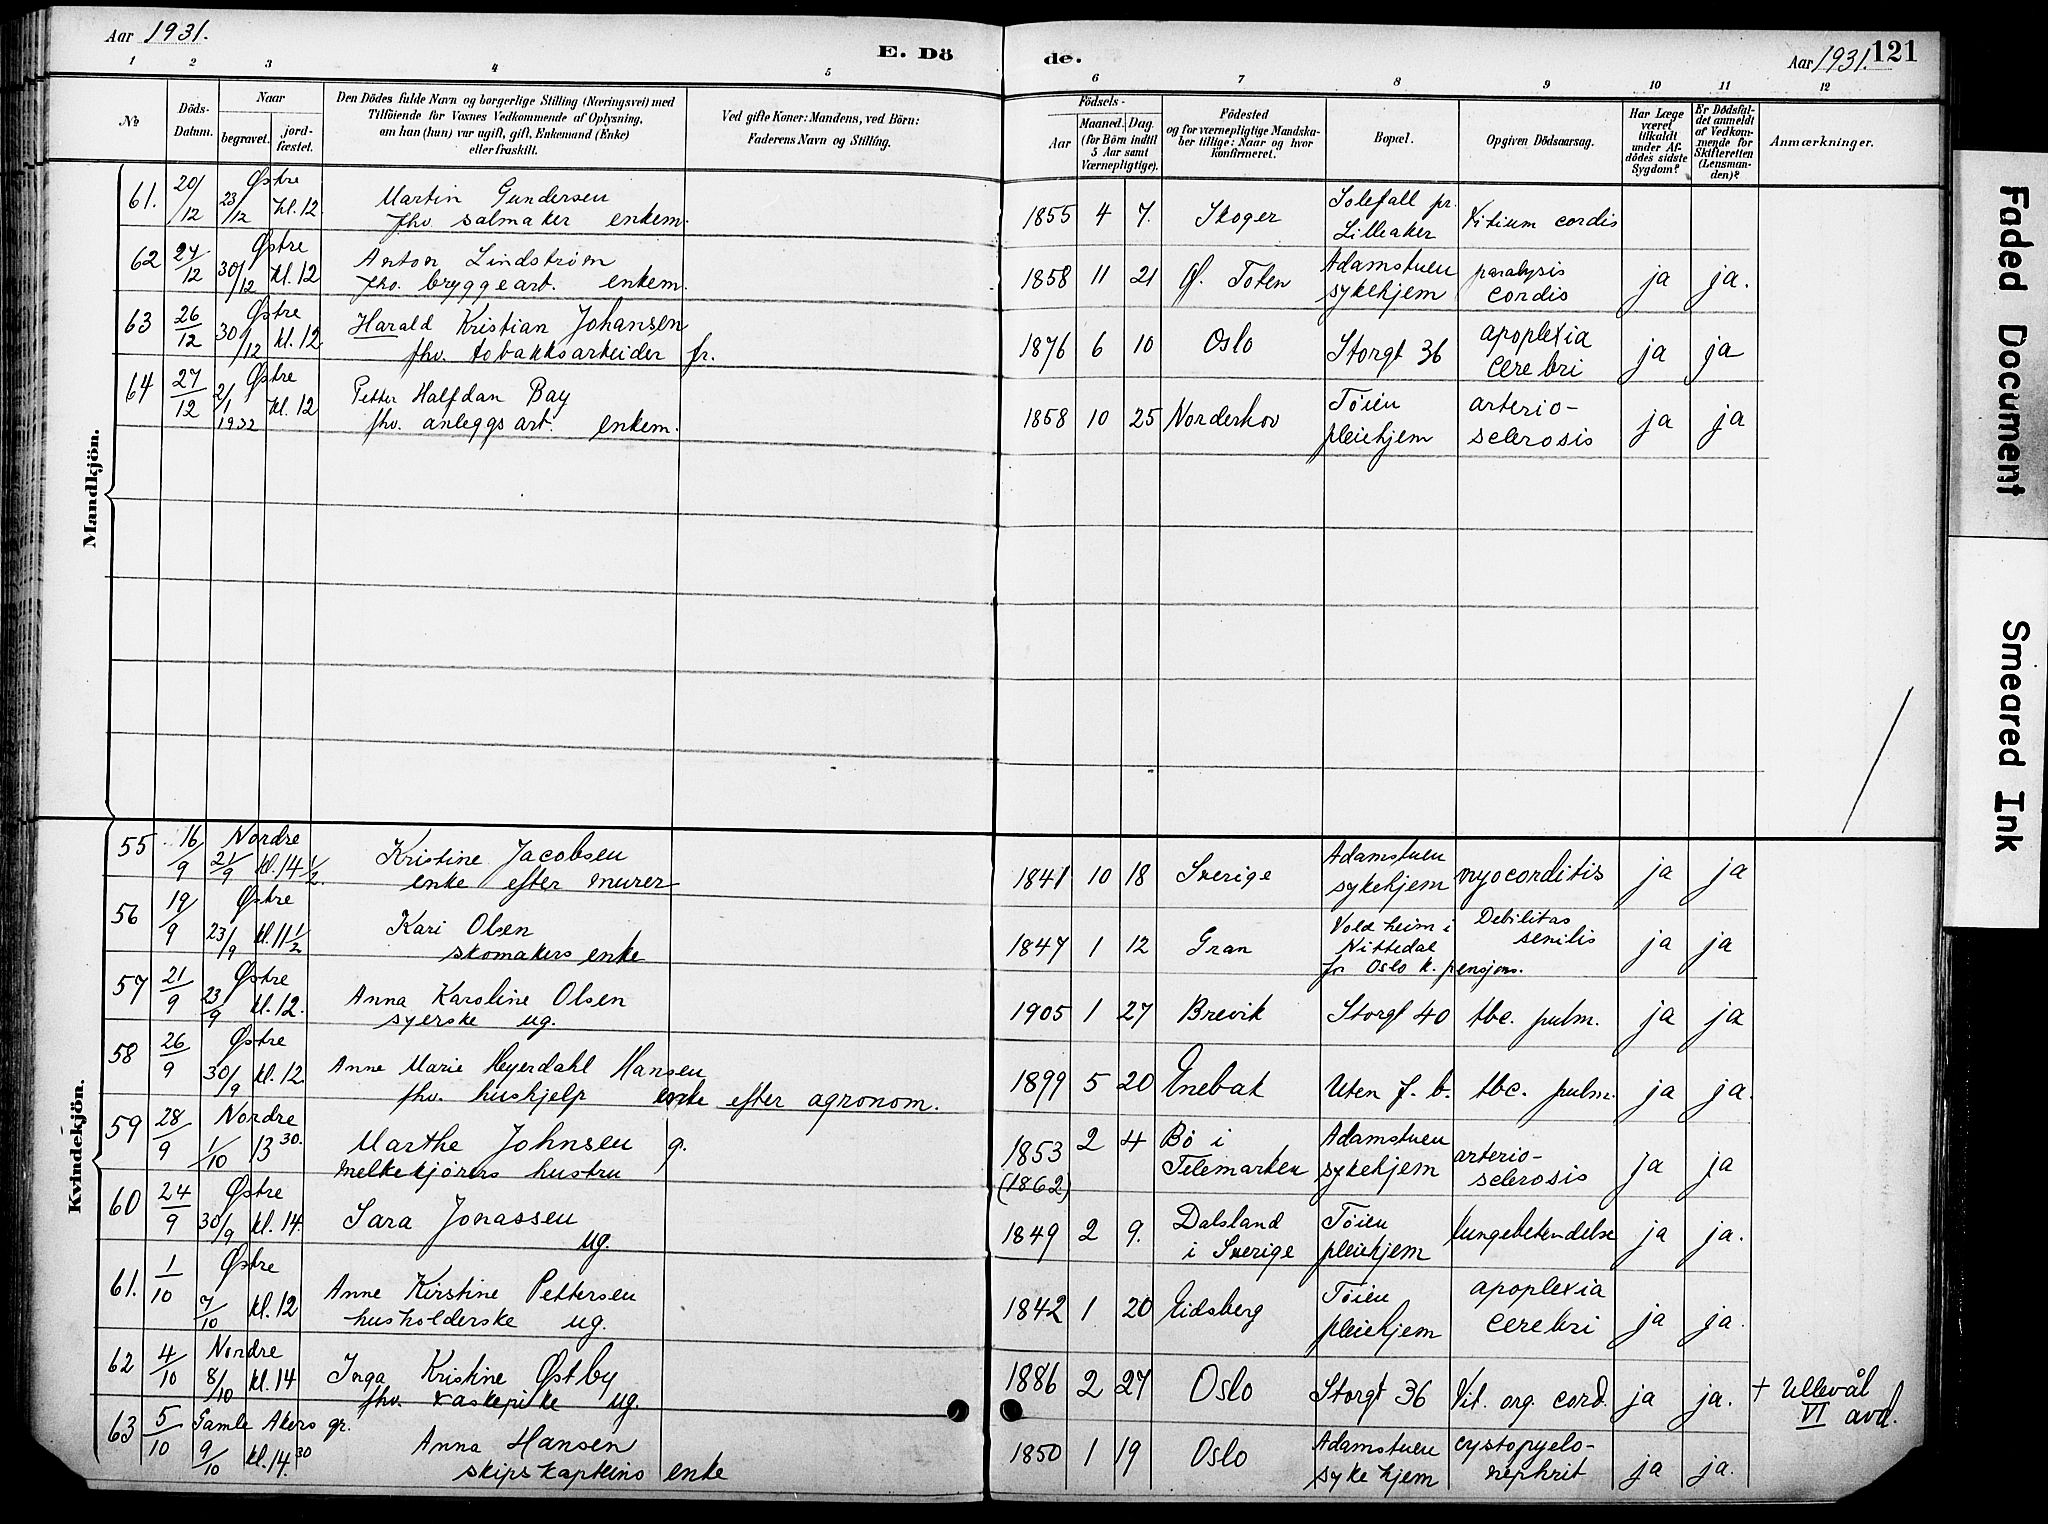 Aar 1931.
E. Dö
de.
Aar 1931.
121
1 2 3 4 5 6 7 8 9 10 11 12
No
Döds-
Datum.
Naar
begravet.
jord-
fæstet.
Den Dödes fulde Navn og borgerlige Stilling (Næringsvei) med
Tilföiende for Voxnes Vedkommende af Oplysning,
om han (hun) var ugift, gift, Enkemand (Enke)
eller fraskilt.
Ved gifte Koner: Mandens, ved Börn:
Faderens Navn og Stilling.
Födsels-
Aar
Maaned. Dag.
(for Börn indtil
5 Aar samt
Værnepligtige).
Födested
og for værnepligtige Mandska-
ber tillige: Naar og hvor
konfirmeret.
Bopæl.
Opgiven Dödsaarsag.
Har Læge
været
tilkaldt
under Af-
dödes sidste
Sygdom?
Er Dödsfal-
det anmeldt
af Vedkom-
mende for
Skifteretten
(Lensman-
den)?
Anmærkninger.
Mandkjön.
61. 20/12 23/12 Østre kl. 12. Martin Gundersen 1855 4 7. Skoger Solefall pr. Vitium cordis
fhv. salmaker enkem. Lilleaker
62 27/12 30/12 Østre kl. 12 Anton Lindstrøm 1858 11 21 Ø. Toten Adamstuen paralysis ja ja.
fhv. bryggeart. enkem. sykehjem cordis
63 26/12 30/12 Østre kl. 12. Harald Kristian Johansen 1876 6 10 Oslo Storgt 36 apoplexia ja ja
fhv. tobakksarbeider fr. cerebri
64 27/12 2/1 1932 Østre kl. 12 Petter Halfdan Bay 1858 10 25 Norderhov Tøien arterio- ja ja
fhv. anleggsart. enkem. pleiehjem sclerosis
Kvindekjön.
55 16/9 21/9 Nordre kl. 14 1/2. Kristine Jacobsen 1841 10 18 Sverige Adamstuen myocorditis ja ja
enke efter murer sykehjem
56 19/9 23/9 Østre kl. 11 1/2 Kari Olsen 1847 1 12 Gran Voldheim i Debilitas ja ja
skomakers enke Nittedal senilis
for Oslo k. pensjons.
57 21/9 23/9 Østre kl. 12. Anna Karoline Olsen 1905 1 27 Brevik Storgt 40 tbc. pulm. ja ja
syerske ug.
58 26/9 30/9 Østre kl. 12. Anne Marie Heyerdahl Hansen 1899 5 20 Enebak Uten f. b. tbc. pulm. ja ja.
fhv. hushjelp enke efter agronom.
59 28/9 1/10 Nordre 13 30. Marthe Johnsen g. 1853 2 4 Bø i Adamstuen arterio- ja ja
melkekjørers hustru (1862) Telemarken sykehjem sclerosis
60 24/9 30/9 Østre kl. 14. Sara Jonassen 1849 2 9. Dalsland Tøien lungebetendelse ja ja.
ug. i Sverige pleiehjem
61. 1/10 7/10 Østre kl. 12 Anne Kirstine Pettersen 1842 1 20 Eidsberg Tøien apoplexia ja ja.
husholderske ug. pleiehjem cerebri
62 4/10 8/10 Nordre kl. 14 Inga Kristine Østby 1886 2 27 Oslo Storgt 36 Vit. org. cord. ja ja. + Ullevål
fhv. vaskepike ug. VI avd.
63 5/10 9/10 Gamle Akers gr. kl. 14.30 Anna Hansen 1850 1 19 Oslo Adamstuen cystopyelo- ja ja.
skipskapteins enke sykehjem nephrit
Faded Document
Smeared Ink